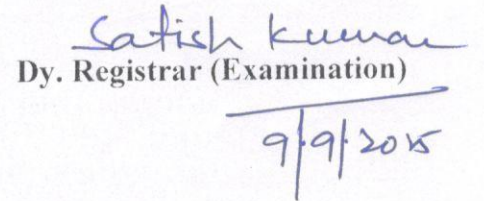 Satish Kumar
Dy. Registrar (Examination)
9/9/2015